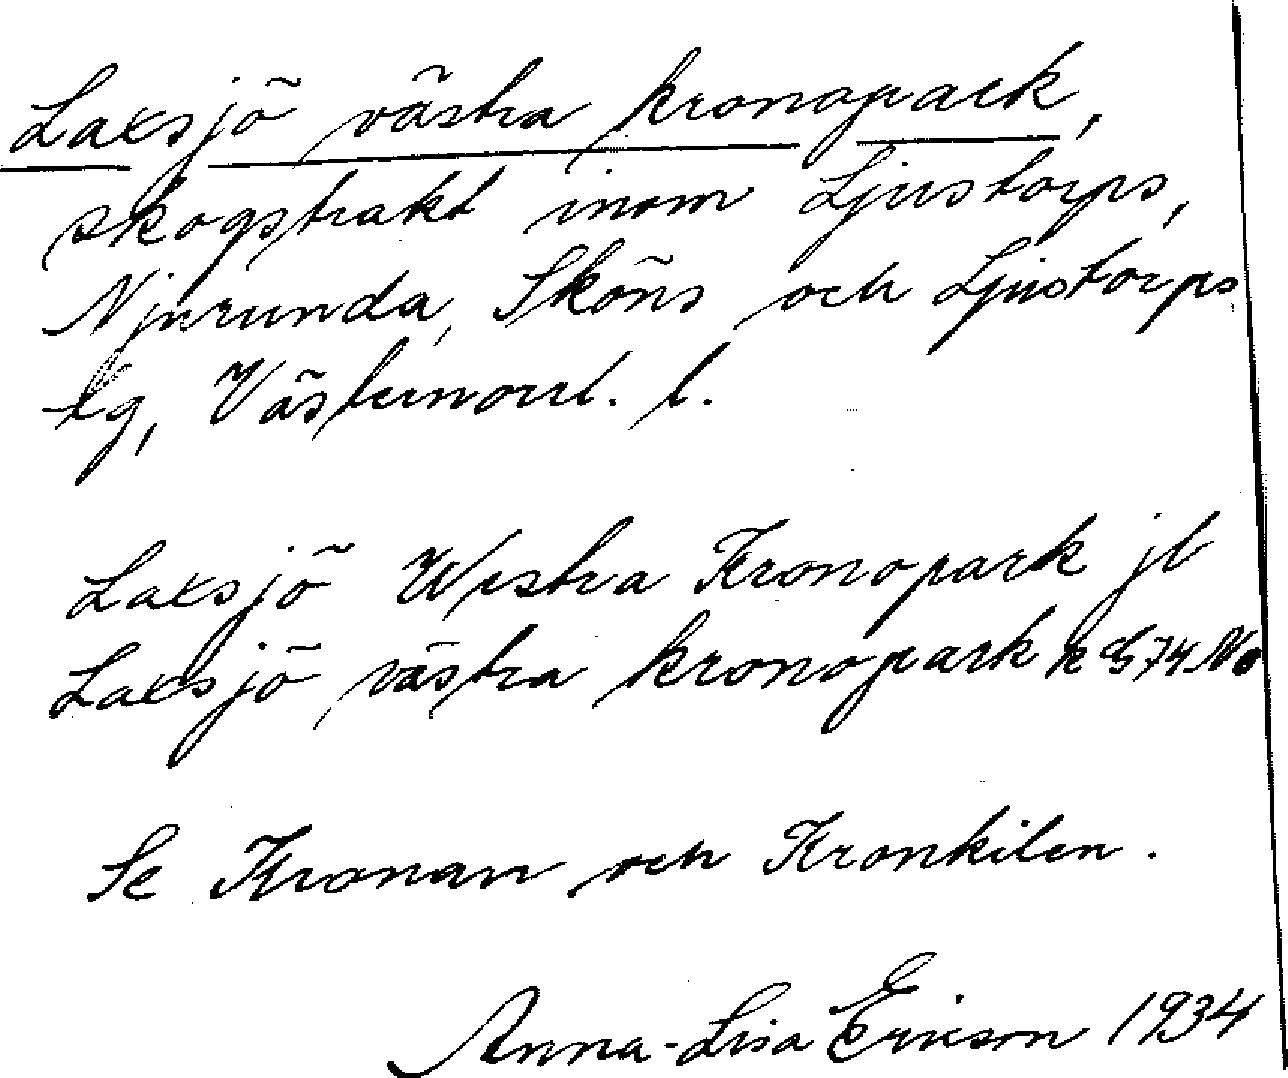 Laxsjö västra kronopark,
skogstrakt inom Ljustorps,
Njurunda, Sköns och Ljustorps
tg, Västernorrl. l.
Laxsjö Westra Kronopark jb
Laxsjö västra kronopark k G 74 No
Se Kronan och Kronkilen.
Anna-Lisa Ericson 1934